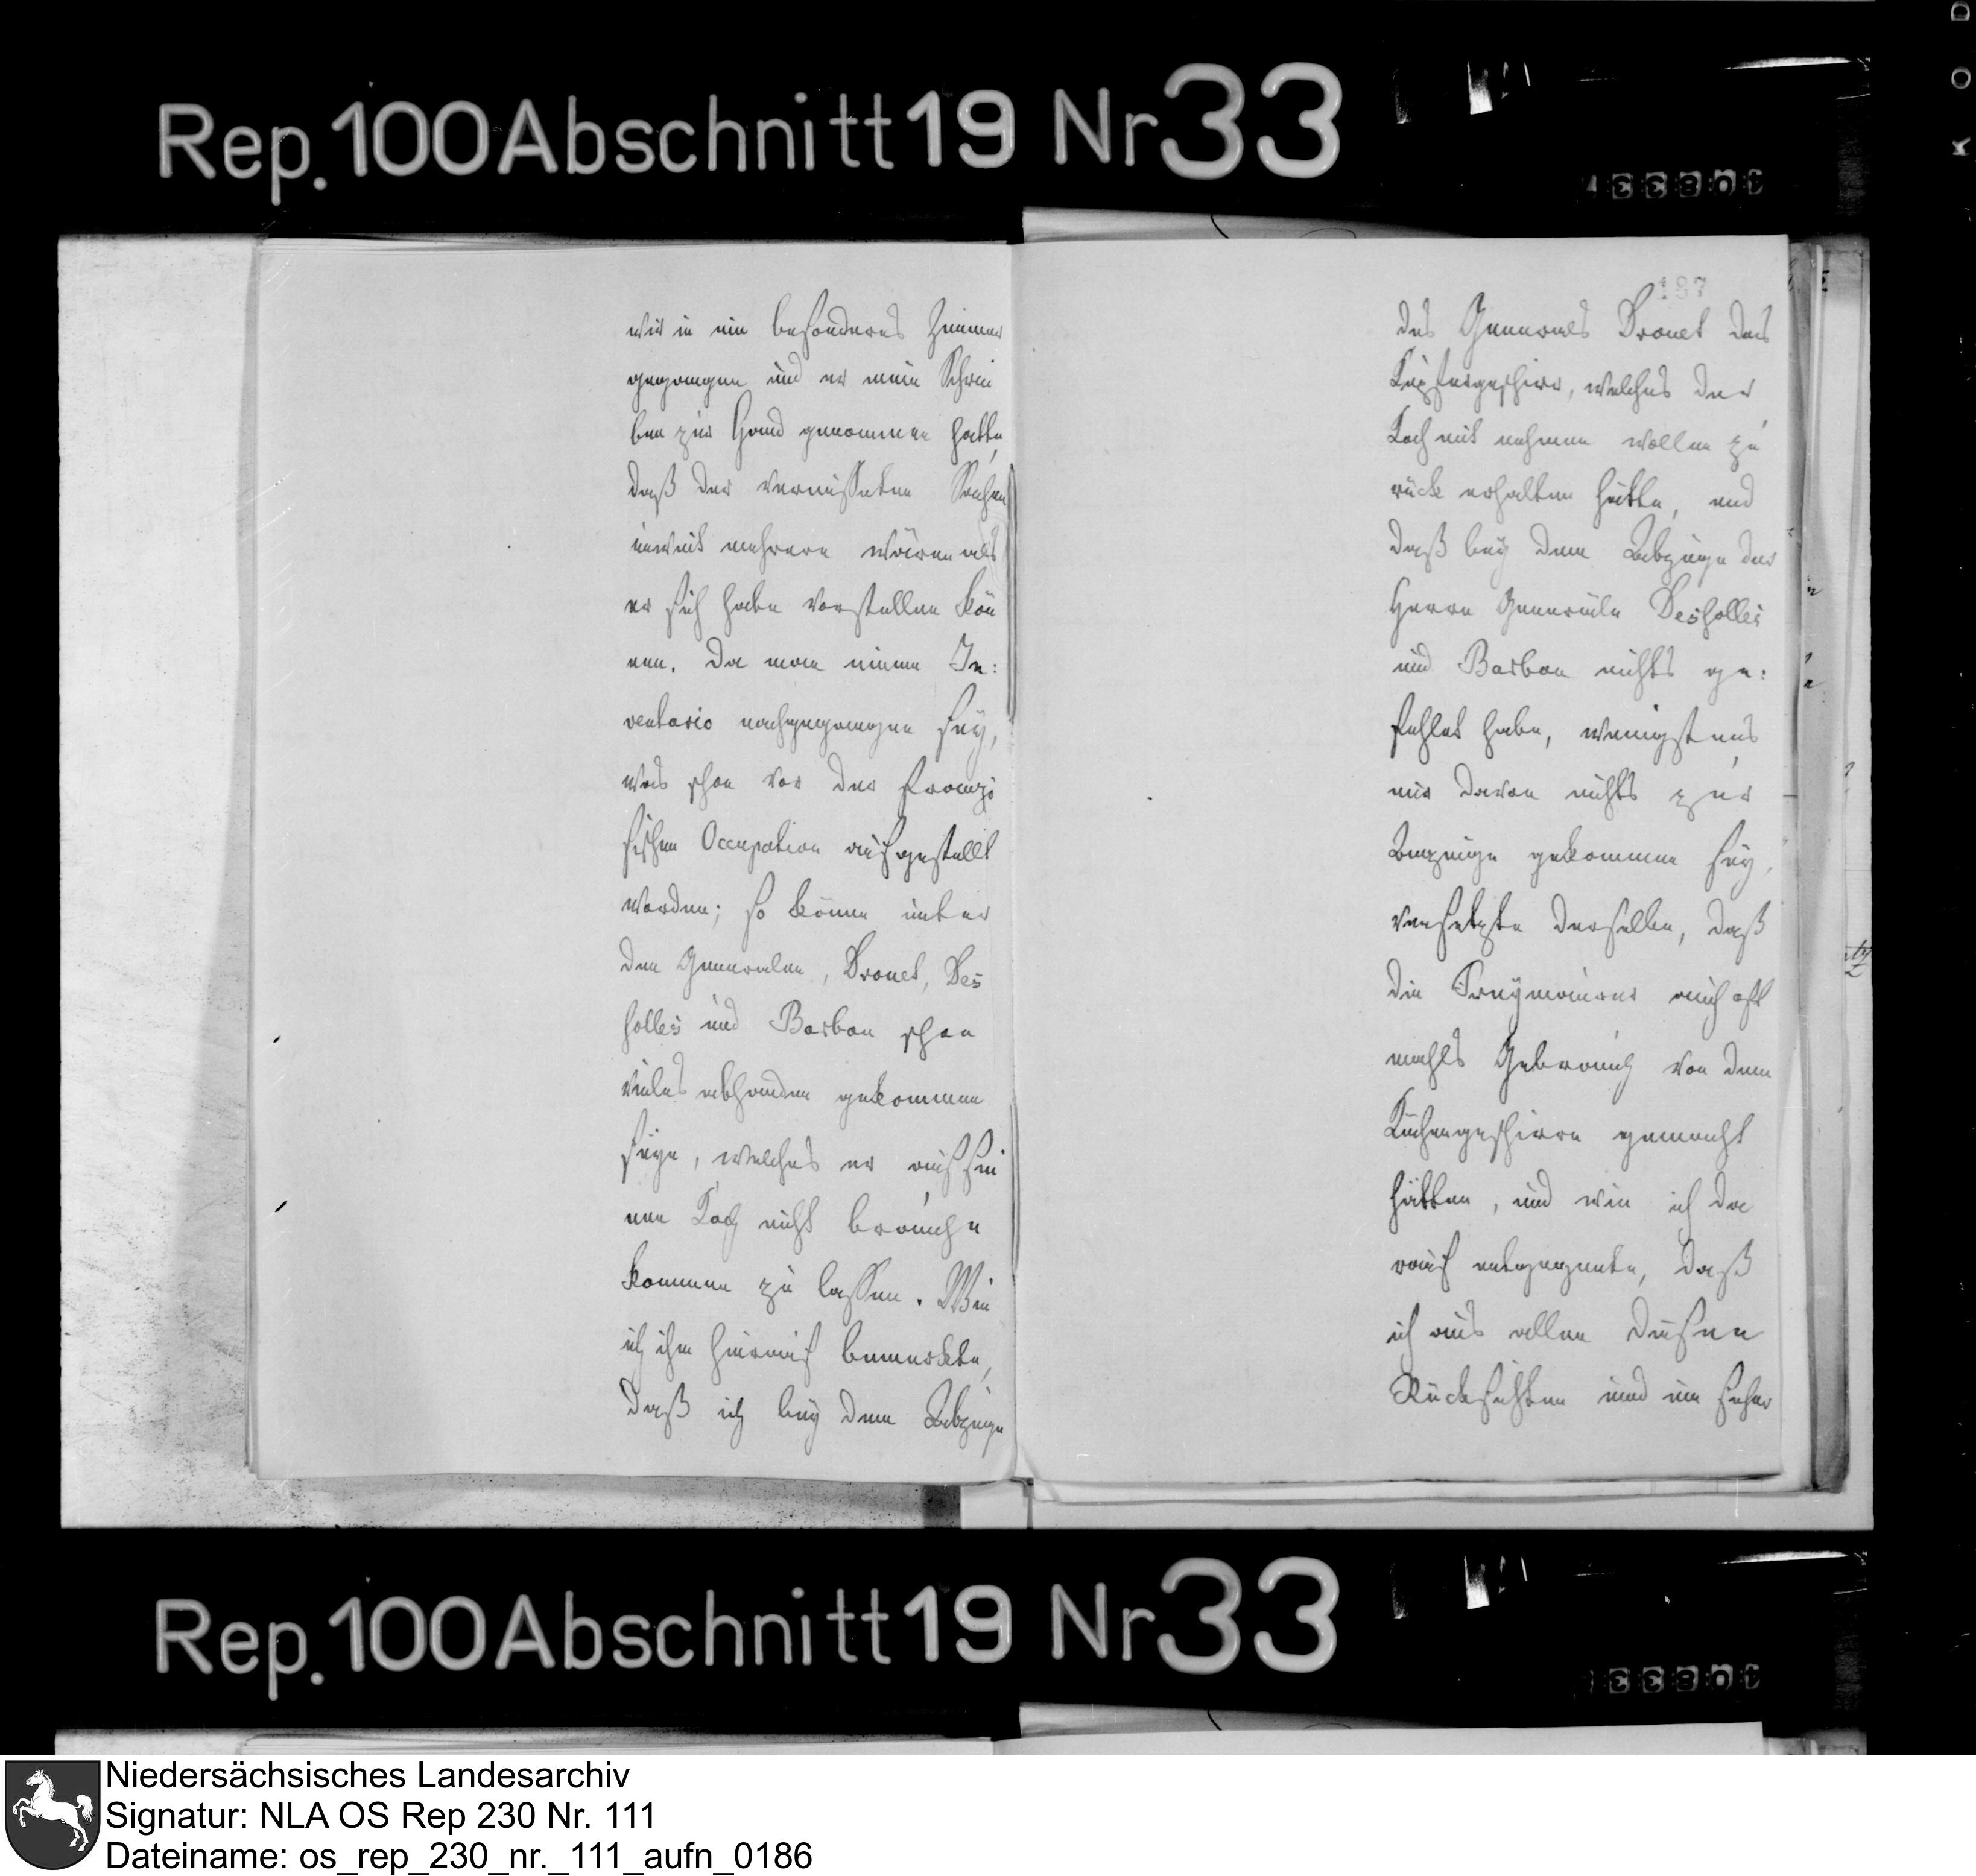 Rep. 100 Abschnitt 19 Nr 33
wir in ein besonderes Zimmer
gegangen und er mein Schrei
ben zur Hand genommen hatte,
daß der vermißten Sachen
weit mehrere wären als
er sich habe vorstellen kön
nen. Da man einem In:
ventario nachgegangen sey,
was schon vor der franzö
sischen Occupation aufgestellt
worden; so könne unter
den Generalen, Drouet, Des
holles und Barbou schon
vieles abhanden gekommen
seyn, welches er auf sei
nen Koch nicht brauche
kommen zu lassen. Wie
ich ihm hierauf bemerkte,
daß ich bey dem Abzuge
187
des Generals Drouet das
Kupfergeschirr, welches der
Koch mit nehmen wollen zu
rück erhalten hätte, und
daß bey dem Abzuge der
Herrn Generäle Desholles
und Barbou nichts ge:
fehlet habe, wenigstens
mir davon nichts zur
Anzeige gekommen sey,
versetzte derselbe, daß
die Freymaurer auch oft
mahls Gebrauch von dem
Küchengeschirre gemacht
hätten, und wie ich da
rauf entgegnete, daß
ich aus allen diesen
Rücksichten und um sicher
Rep. 100 Abschnitt 19 Nr 33
Niedersächsisches Landesarchiv
Signatur: NLA OS Rep 230 Nr. 111
Dateiname: os_rep_230_nr._111_aufn_0186